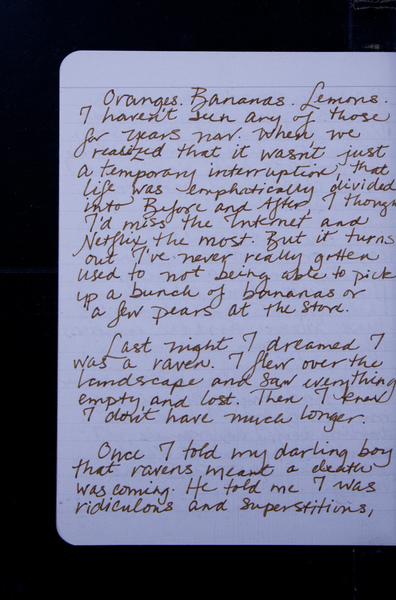 Oranges. Bananas. Lemons.
I haven't seen any of those
for years now. When we
realized that it wasn't just
a temporary interruption, that
life was emphatically divided
into Before and After, I though
I'd miss the Internet and
Netflix the most. But it turns
out I've never really gotten
used to not being able to pick
up a bunch of bananas or
a few pears at the store.
Last night I dreamed I
was a raven. I flew over the
landscape and saw everything
empty and lost. Then I knew
I don't have much longer.
Once I told my darling boy
that ravens meant a death
was coming. He told me I was
ridiculous and superstitious,